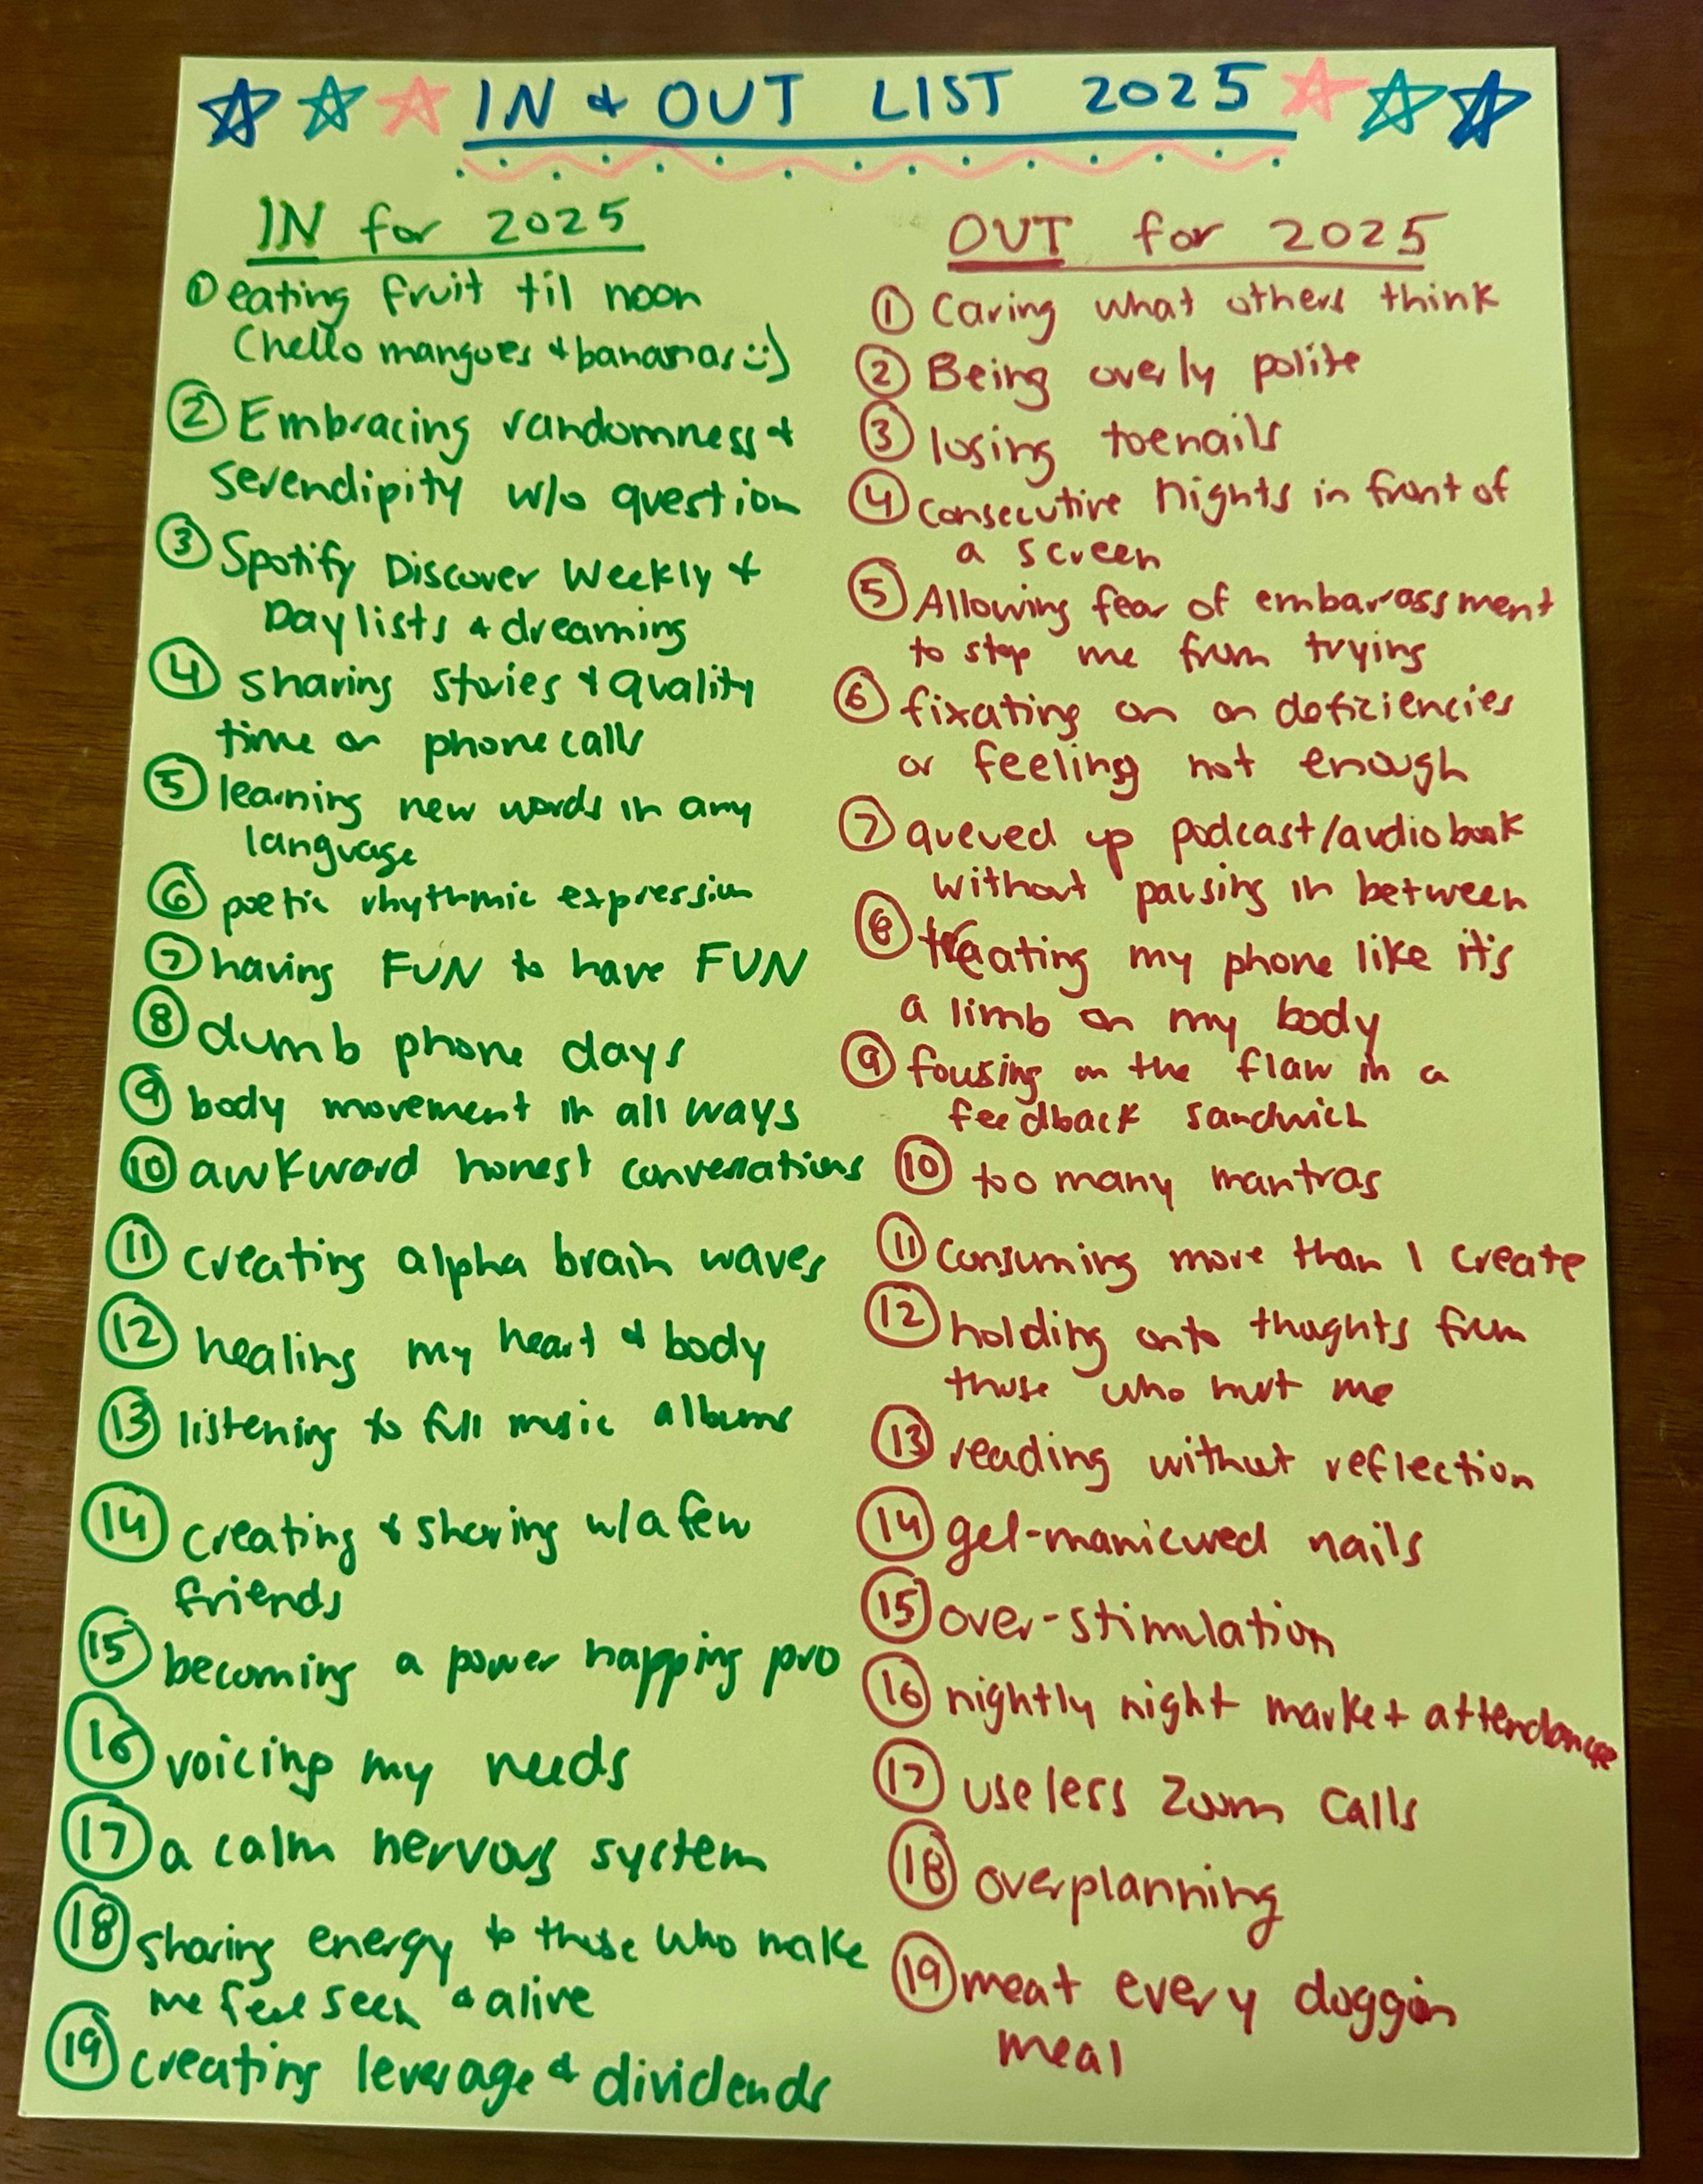 IN & OUT LIST 2025
IN for 2025
① eating fruit til noon
(hello mangoes & bananas :))
② Embracing randomness &
serendipity w/o question
③ Spotify Discover Weekly &
Daylists & dreaming
④ sharing stories & quality
time on phone calls
⑤ learning new words in any
language
⑥ poetic rhythmic expression
⑦ having FUN to have FUN
⑧ dumb phone days
⑨ body movement in all ways
⑩ awkward honest conversations
⑪ creating alpha brain waves
⑫ healing my heart & body
⑬ listening to full music albums
⑭ creating & sharing w/a few
friends
⑮ becoming a power napping pro
⑯ voicing my needs
⑰ a calm nervous system
⑱ sharing energy to those who make
me feel seen & alive
⑲ creating leverage & dividends
OUT for 2025
① Caring what others think
② Being overly polite
③ losing toenails
④ consecutive nights in front of
a screen
⑤ Allowing fear of embarassment
to stop me from trying
⑥ fixating on on deficiencies
or feeling not enough
⑦ queued up podcast/audiobook
without pausing in between
⑧ treating my phone like it's
a limb on my body
⑨ fousing on the flaw in a
feedback sandwich
⑩ too many mantras
⑪ Consuming more than I create
⑫ holding onto thoghts from
those who hurt me
⑬ reading without reflection
⑭ gel-manicured nails
⑮ over-stimulation
⑯ nightly night market attendance
⑰ useless Zoom Calls
⑱ overplanning
⑲ meat every doggon
meal